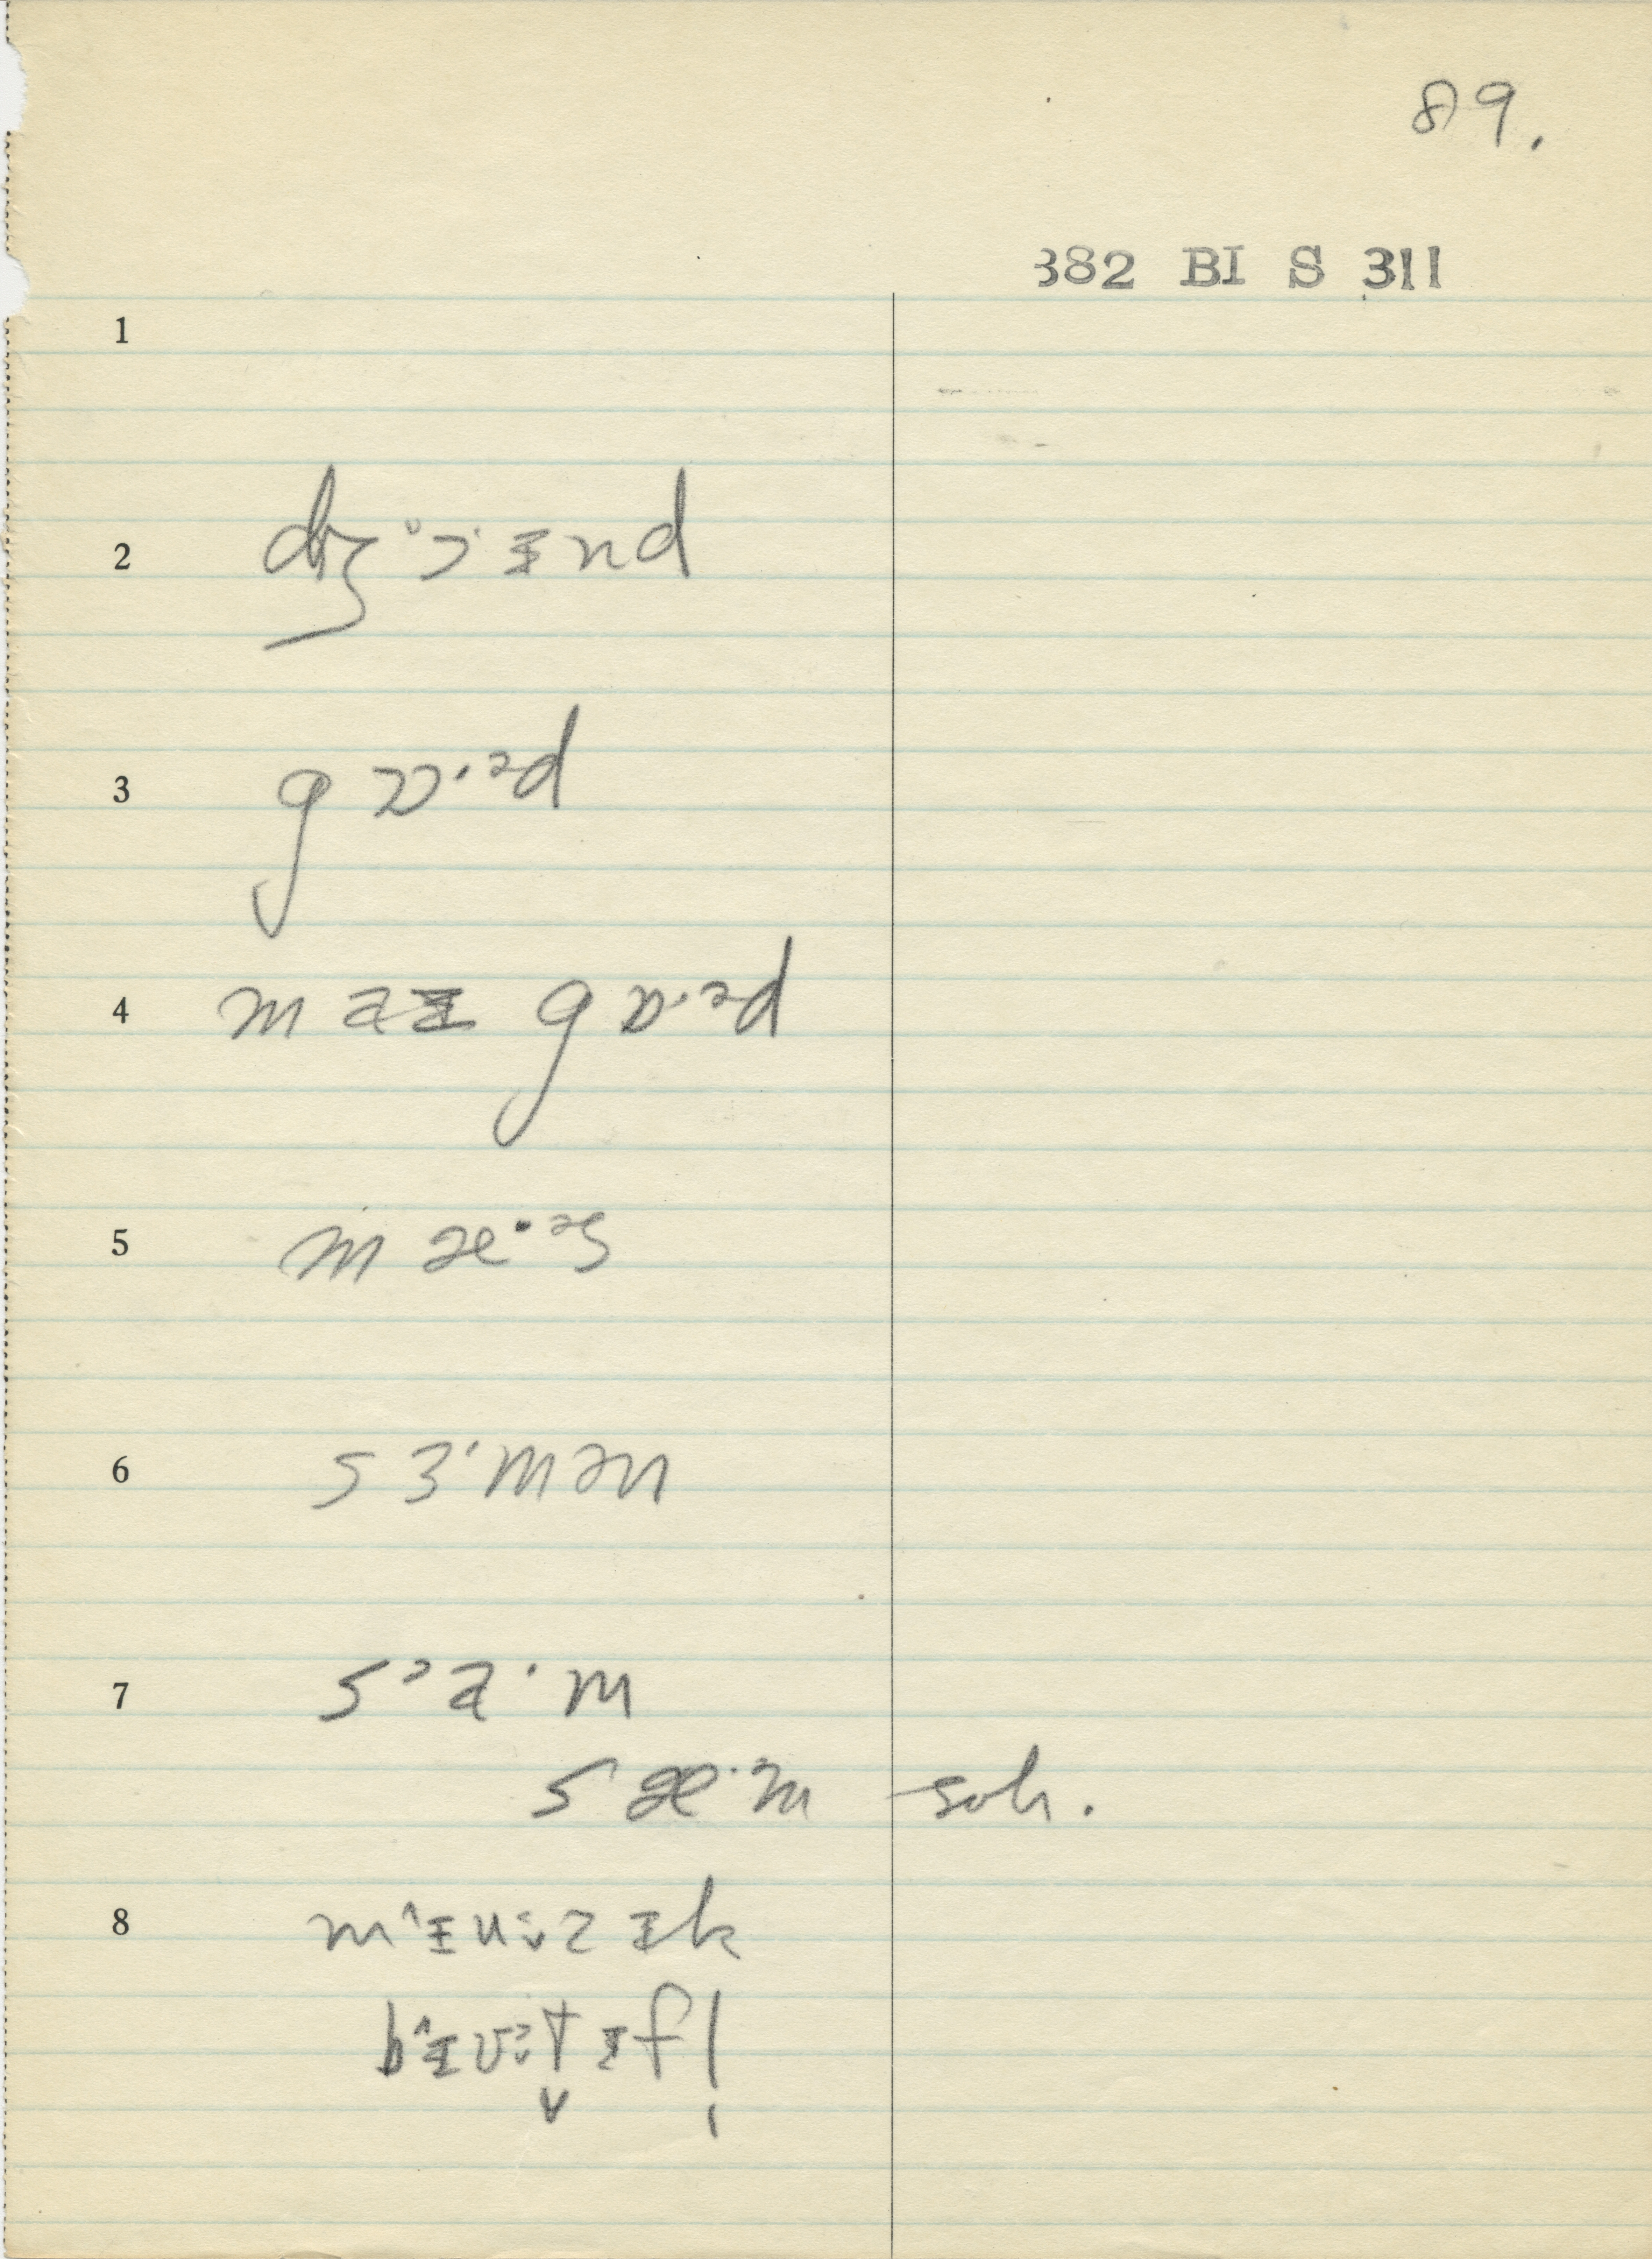 89.
382 BI S 311
1
2 dʒɔ˞·ɪnd
3 gɒ·ᵊd
4 maɪ gɒ·ᵊd
5 mæ·ᵊs
6 sɜ·mən
7 sᵓa·m
sæ·m soh.
8 m^ɪu:zɪk
b^ɪʊ:tɪf!